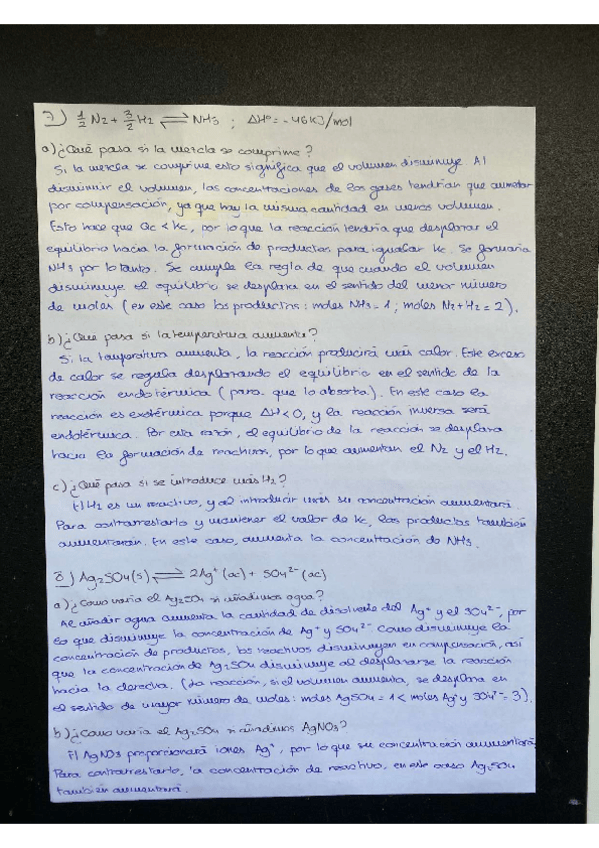 7) 1/2 N2 + 3/2 H2 ⇌ NH3 ; ΔHº = -46 KJ/mol
a) ¿Qué pasa si la mezcla se comprime?
Si la mezcla se comprime esto significa que el volumen disminuye. Al
disminuir el volumen, las concentraciones de los gases tendrían que aumentar
por compensación, ya que hay la misma cantidad en menos volumen.
Esto hace que Qc < Kc, por lo que la reacción tendría que desplazar el
equilibrio hacia la formación de productos para igualar Kc. Se formaría
NH3 por lo tanto. Se cumple la regla de que cuando el volumen
disminuye el equilibrio se desplaza en el sentido del menor número
de moles (en este caso los productos: moles NH3 = 1 ; moles N2 + H2 = 2).
b) ¿Qué pasa si la temperatura aumenta?
Si la temperatura aumenta, la reacción producirá más calor. Este exceso
de calor se regula desplazando el equilibrio en el sentido de la
reacción endotérmica (para que lo absorba). En este caso la
reacción es exotérmica porque ΔH<0, y la reacción inversa será
endotérmica. Por esta razón, el equilibrio de la reacción se desplaza
hacia la formación de reactivos, por lo que aumentan el N2 y el H2.
c) ¿Qué pasa si se introduce más H2?
El H2 es un reactivo, y al introducir más su concentración aumentará.
Para contrarrestarlo y mantener el valor de Kc, los productos también
aumentarán. En este caso, aumenta la concentración de NH3.
8) Ag2SO4 (s) ⇌ 2Ag+ (ac) + SO4 2- (ac)
a) ¿Como varía el Ag2SO4 si añadimos agua?
Al añadir agua aumenta la cantidad de disolvente del Ag+ y el SO4 2-, por
lo que disminuye la concentración de Ag+ y SO4 2-. Como disminuye la
concentración de productos, los reactivos disminuyen en compensación, así
que la concentración de Ag2SO4 disminuye al desplazarse la reacción
hacia la derecha. (La reacción, si el volumen aumenta, se desplaza en
el sentido de mayor número de moles: moles AgSO4 = 1 < moles Ag+ y SO4 2- = 3).
b) ¿Como varía el Ag2SO4 si añadimos AgNO3?
El AgNO3 proporcionará iones Ag+, por lo que su concentración aumentará.
Para contrarrestarlo, la concentración de reactivo, en este caso Ag2SO4
también aumentará.